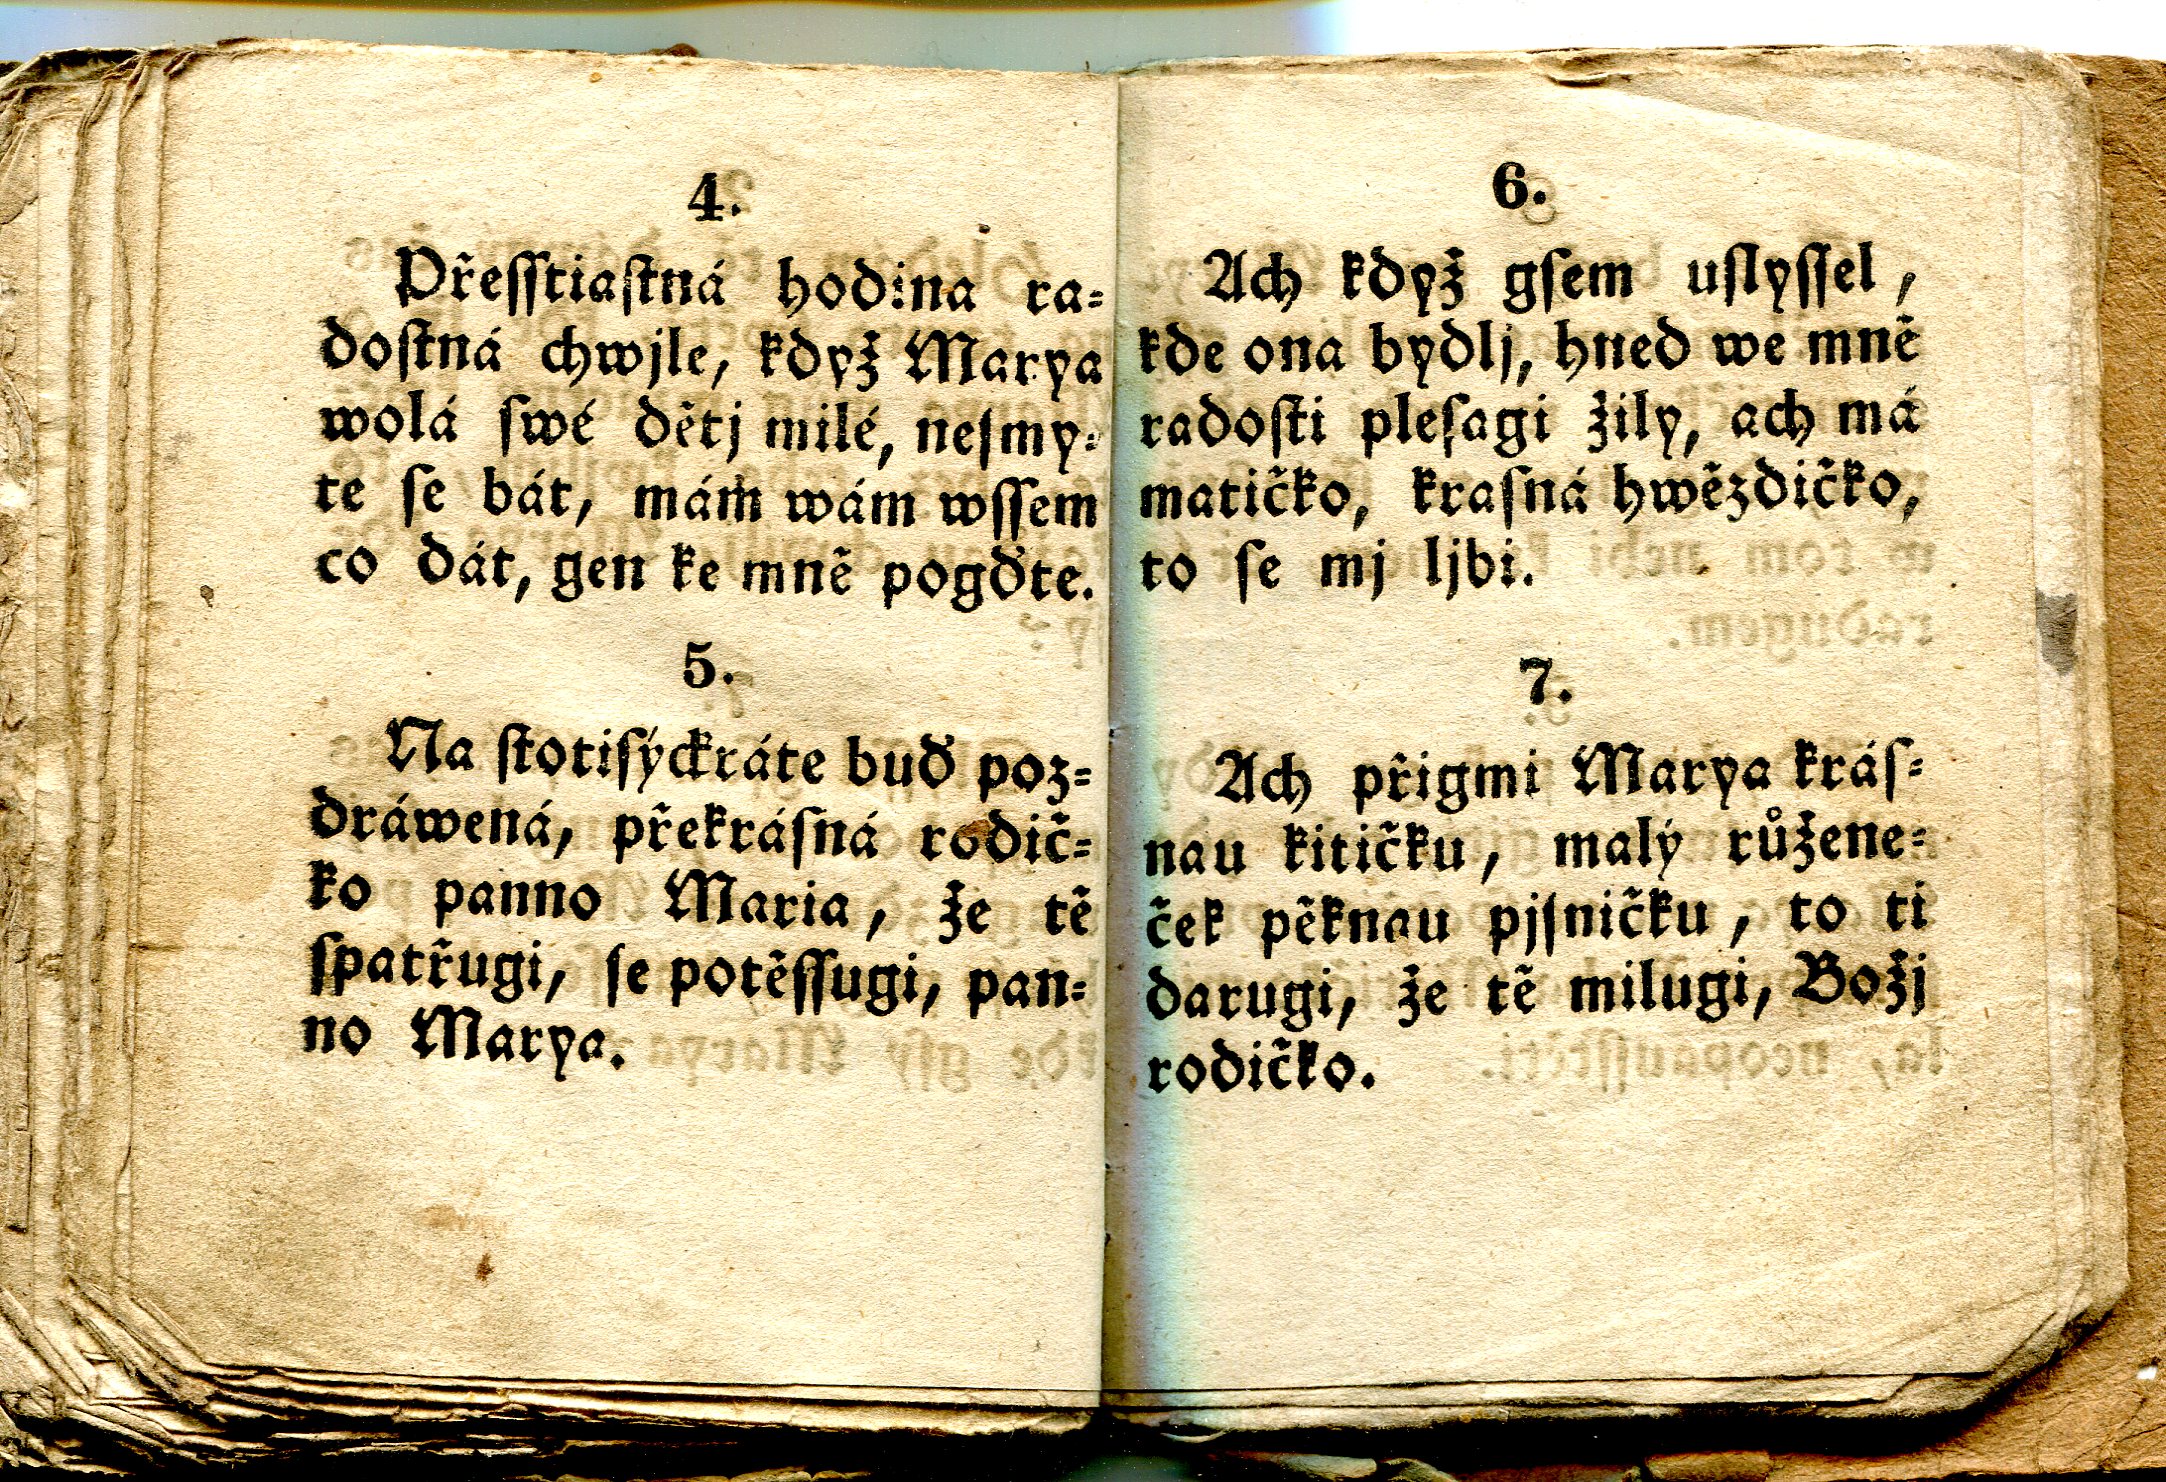 4.
Přeſſtiaſtná hodina ra=
doſtná chwjle, když Marya
wolá ſwé dětj milé, neſmy=
te ſe bát, mám wám wſſem
co dát, gen ke mně pogďte.
5.
Na ſtotiſýckráte buď poz=
dráwená, překráſná rodič=
ko panno Maria, že tě
ſpatřugi, ſe potěſſugi, pan=
no Marya.
6.
Ach když gſem uſlyſſel,
kde ona bydlj, hned we mně
radoſti pleſagi žily, ach má
matičko, kraſná hwězdičko,
to ſe mj ljbi.
7.
Ach přigmi Marya kráſ=
nau kitičku, malý růžene=
ček pěknau pjſničku, to ti
darugi, že tě milugi, Božj
rodičko.